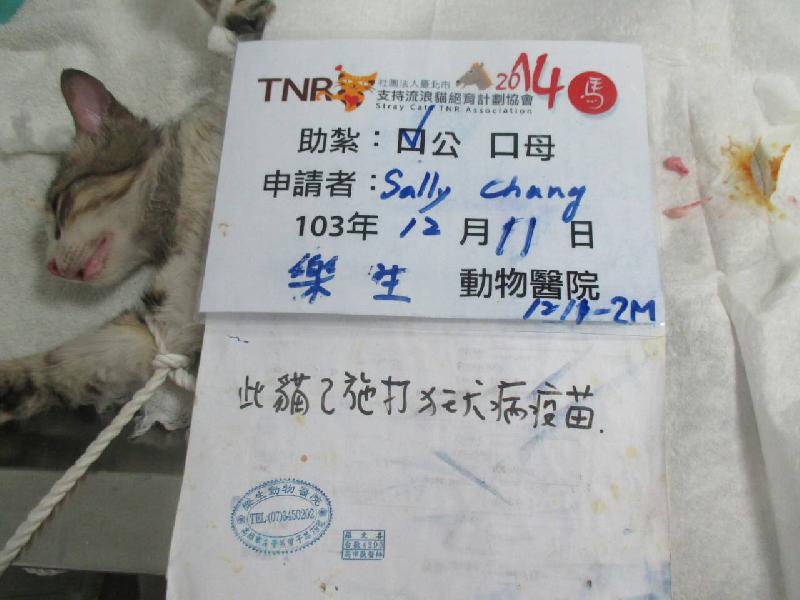 TNR 社團法人臺北市 2014 馬
支持流浪貓絕育計劃協會
Stray Cats TNR Association
助紮：口公 口母
申請者：Sally Chang
103年 12 月 11 日
樂生 動物醫院
12/11-2M
此貓已施打狂犬病疫苗.
樂生動物醫院
TEL:(07)3450202